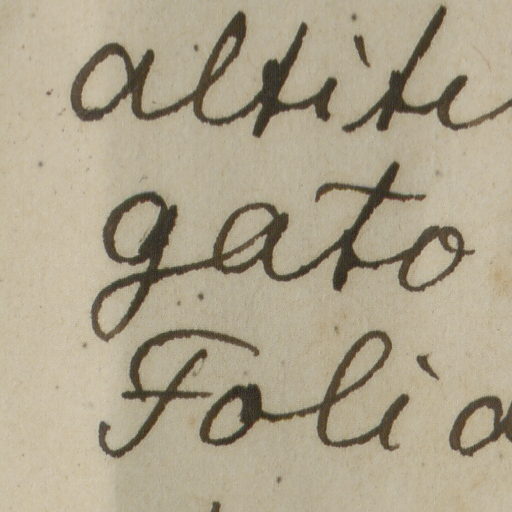 altite
gato
Folia